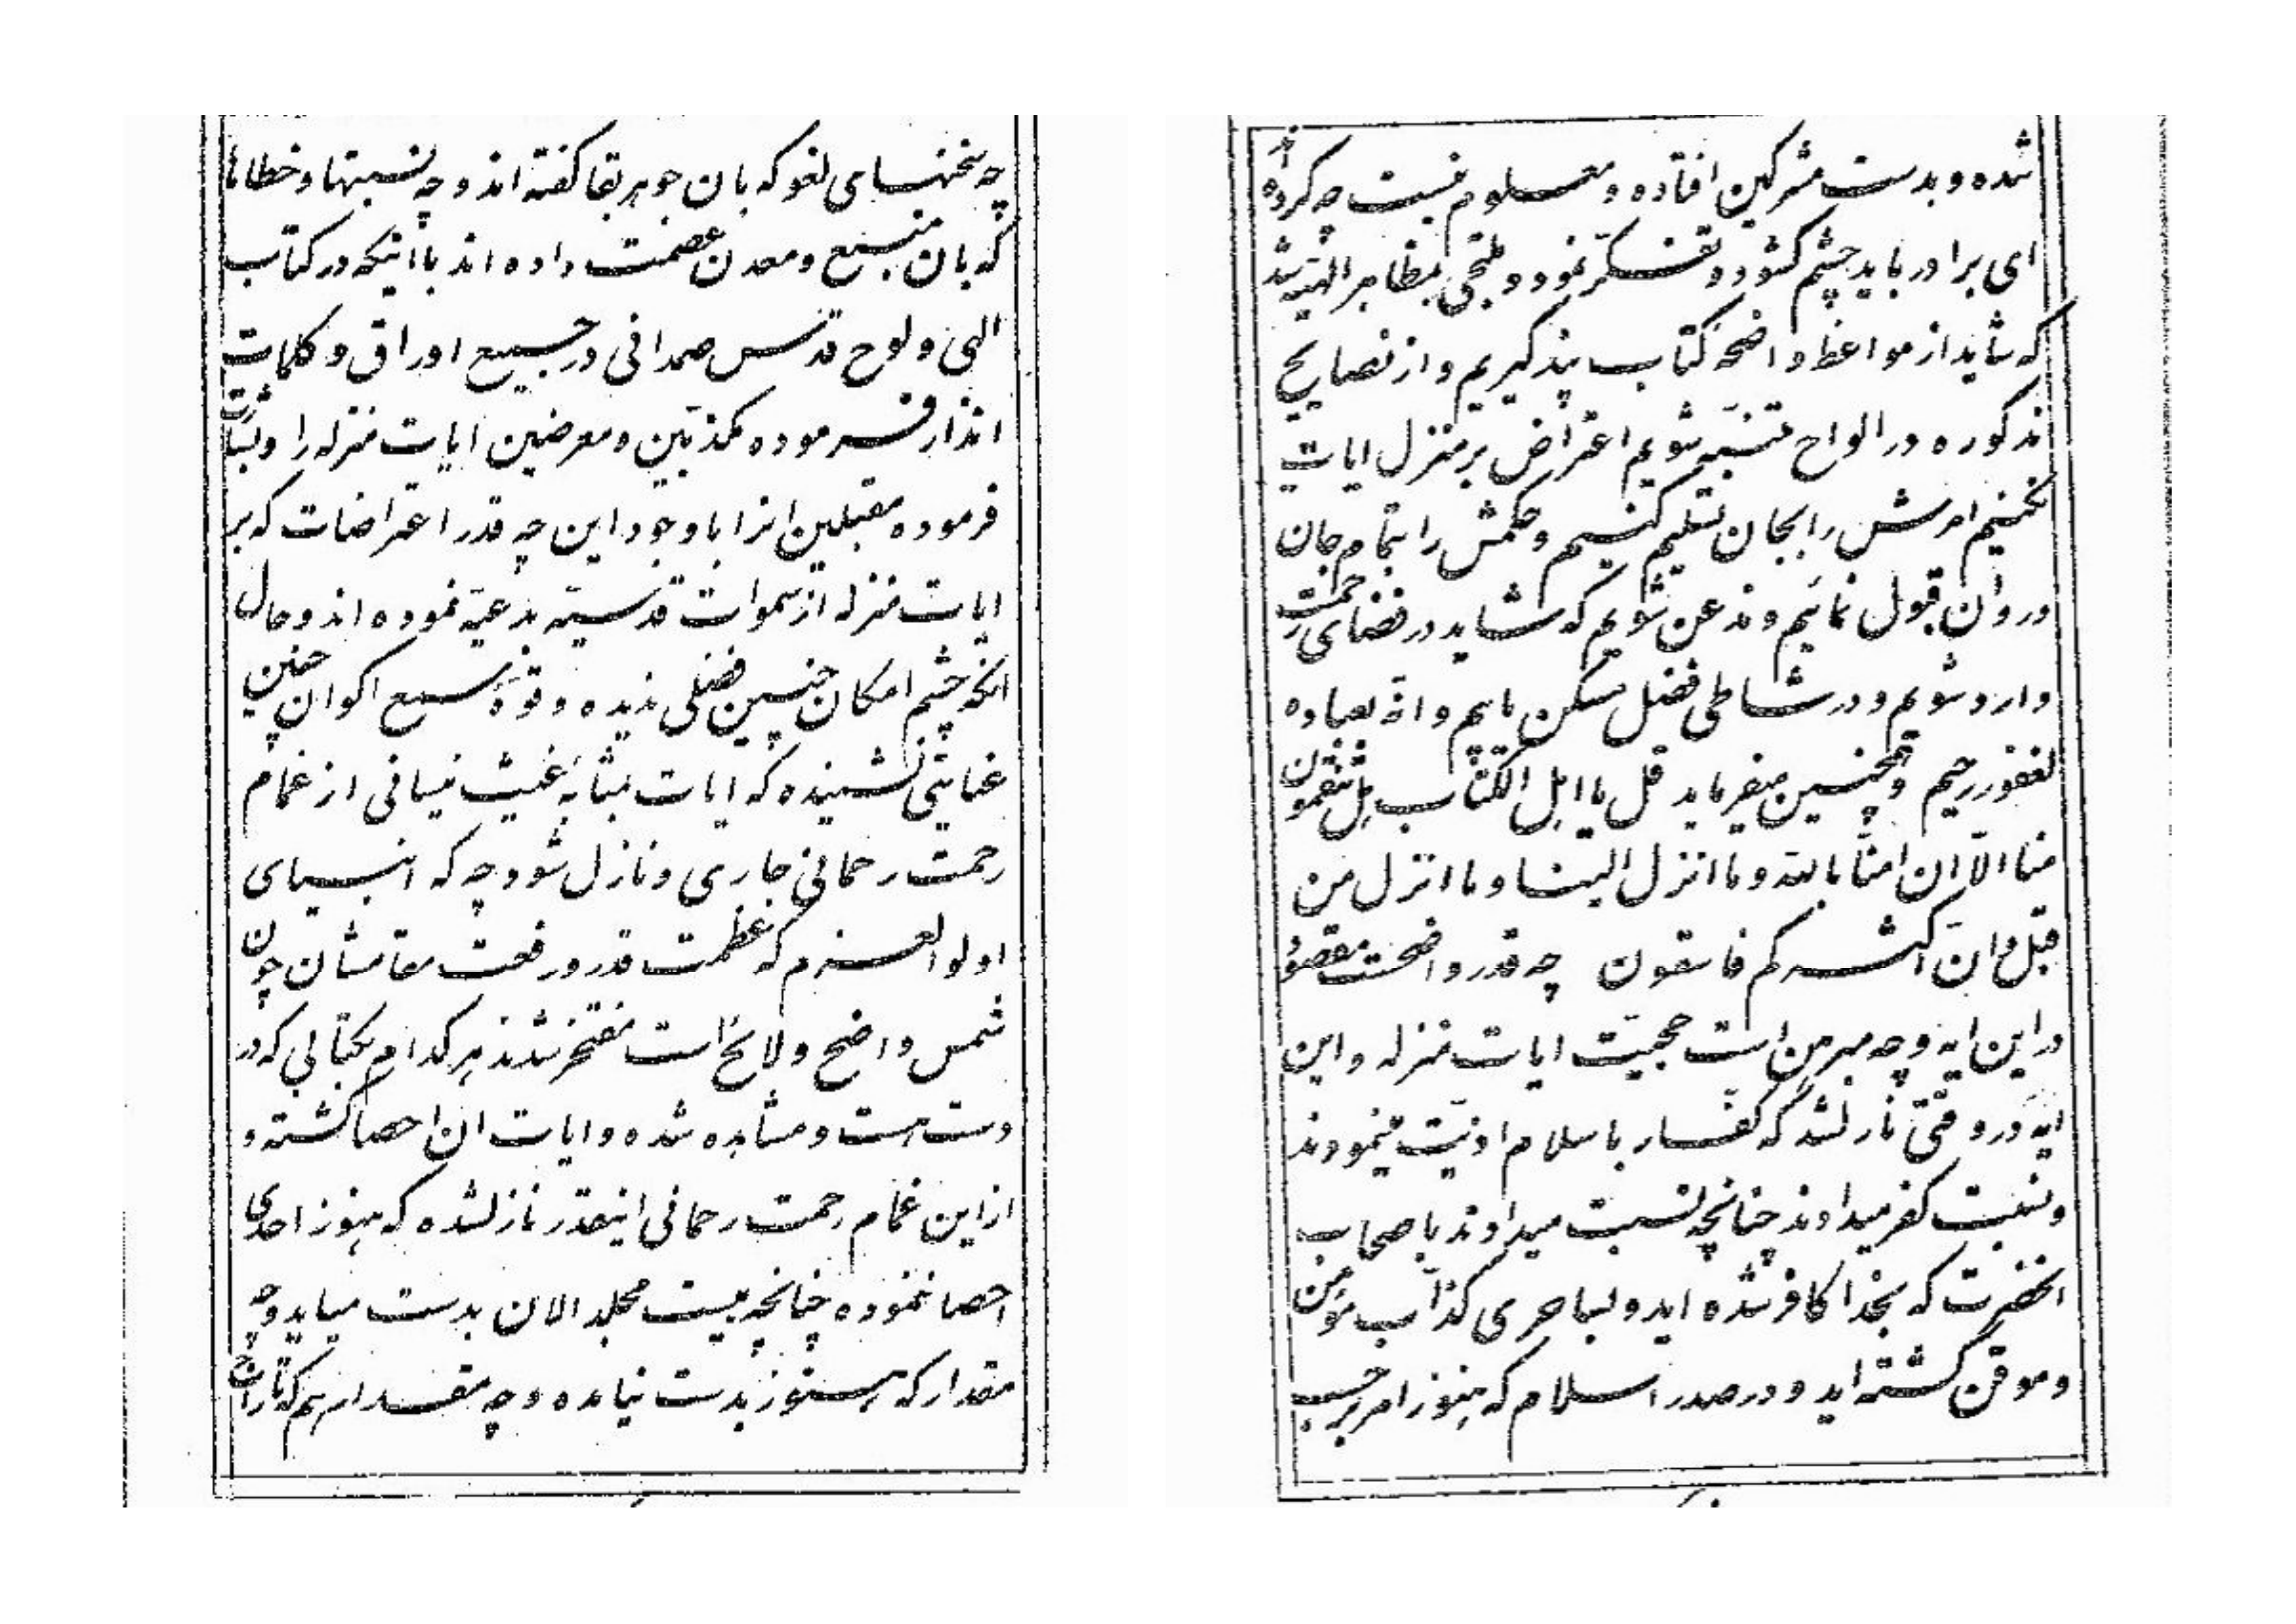 چه سخنهای لغو که بان جوهر بقا گفته اند و چه نسبتها و خطاها
که بان منبع و معدن عصمت داده اند با اینکه در کتاب
الهی و لوح قدس صمدانی در جمیع اوراق و کلمات
انذار فرموده مکذبین و معرضین ایات منزله را و بشارت
فرموده مقبلین انرا با وجود این چه قدر اعتراضات که بر
ایات منزله از سموات قدسیّه بدعیّه نموده اند و حال
انکه چشم امکان چنین فضلی ندیده و قوّهٔ سمع اکوان چنین
عنایتی نشنیده که ایات بمثابهٔ غیث نیسانی از غمام
رحمت رحمانی جاری و نازل شود چه که انبیای
اولوالعزم که عظمت قدر و رفعت مقامشان چون
شمس واضح و لائح است مفتخر شدند هر کدام بکتابی که در
دست هست و مشاهده شده و ایات ان احصا گشته و
از این غمام رحمت رحمانی اینقدر نازلشده که هنوز احدی
احصا ننموده چنانچه بیست مجلد الان بدست میاید و چه
مقدار که هنوز بدست نیامده و چه مقدار هم که تاراج
شده و بدست مشرکین افتاده و معلوم نیست چه کرده‌اند
ای برادر باید چشم گشود و تفکّر نمود و ملتجی بمظاهر الهیّه شد
که شاید از مواعظ واضحهٔ کتاب پند گیریم و از نصایح
مذکوره در الواح متنبّه شویم اعتراض بر منزل ایات
نکنیم امرش را بجان تسلیم کنیم و حکمش را بتمام جان
و روان قبول نمائیم و مذعن شویم که شاید در فضای رحمت
وارد شویم و در شاطی فضل مسکن یابیم و انّه بعباده
لغفور رحیم و همچنین میفرماید قل یا اهل الکتاب هل تنقمون
منا الّا ان امنّا بالله و ما انزل الینا و ما انزل من
قبل و انّ اکثرکم فاسقون چه قدر واضحست مقصود
در این ایه و چه مبرهن است حجیّت ایات منزله و این
ایه در وقتی نازلشد که کفّار باسلام اذیّت مینمودند
و نسبت کفر میدادند چنانچه نسبت میدادند باصحاب
انحضرت که بخدا کافر شده اید و بساحری کذّاب مؤمن
و موقن گشته اید و در صدر اسلام که هنوز امر بر حسب